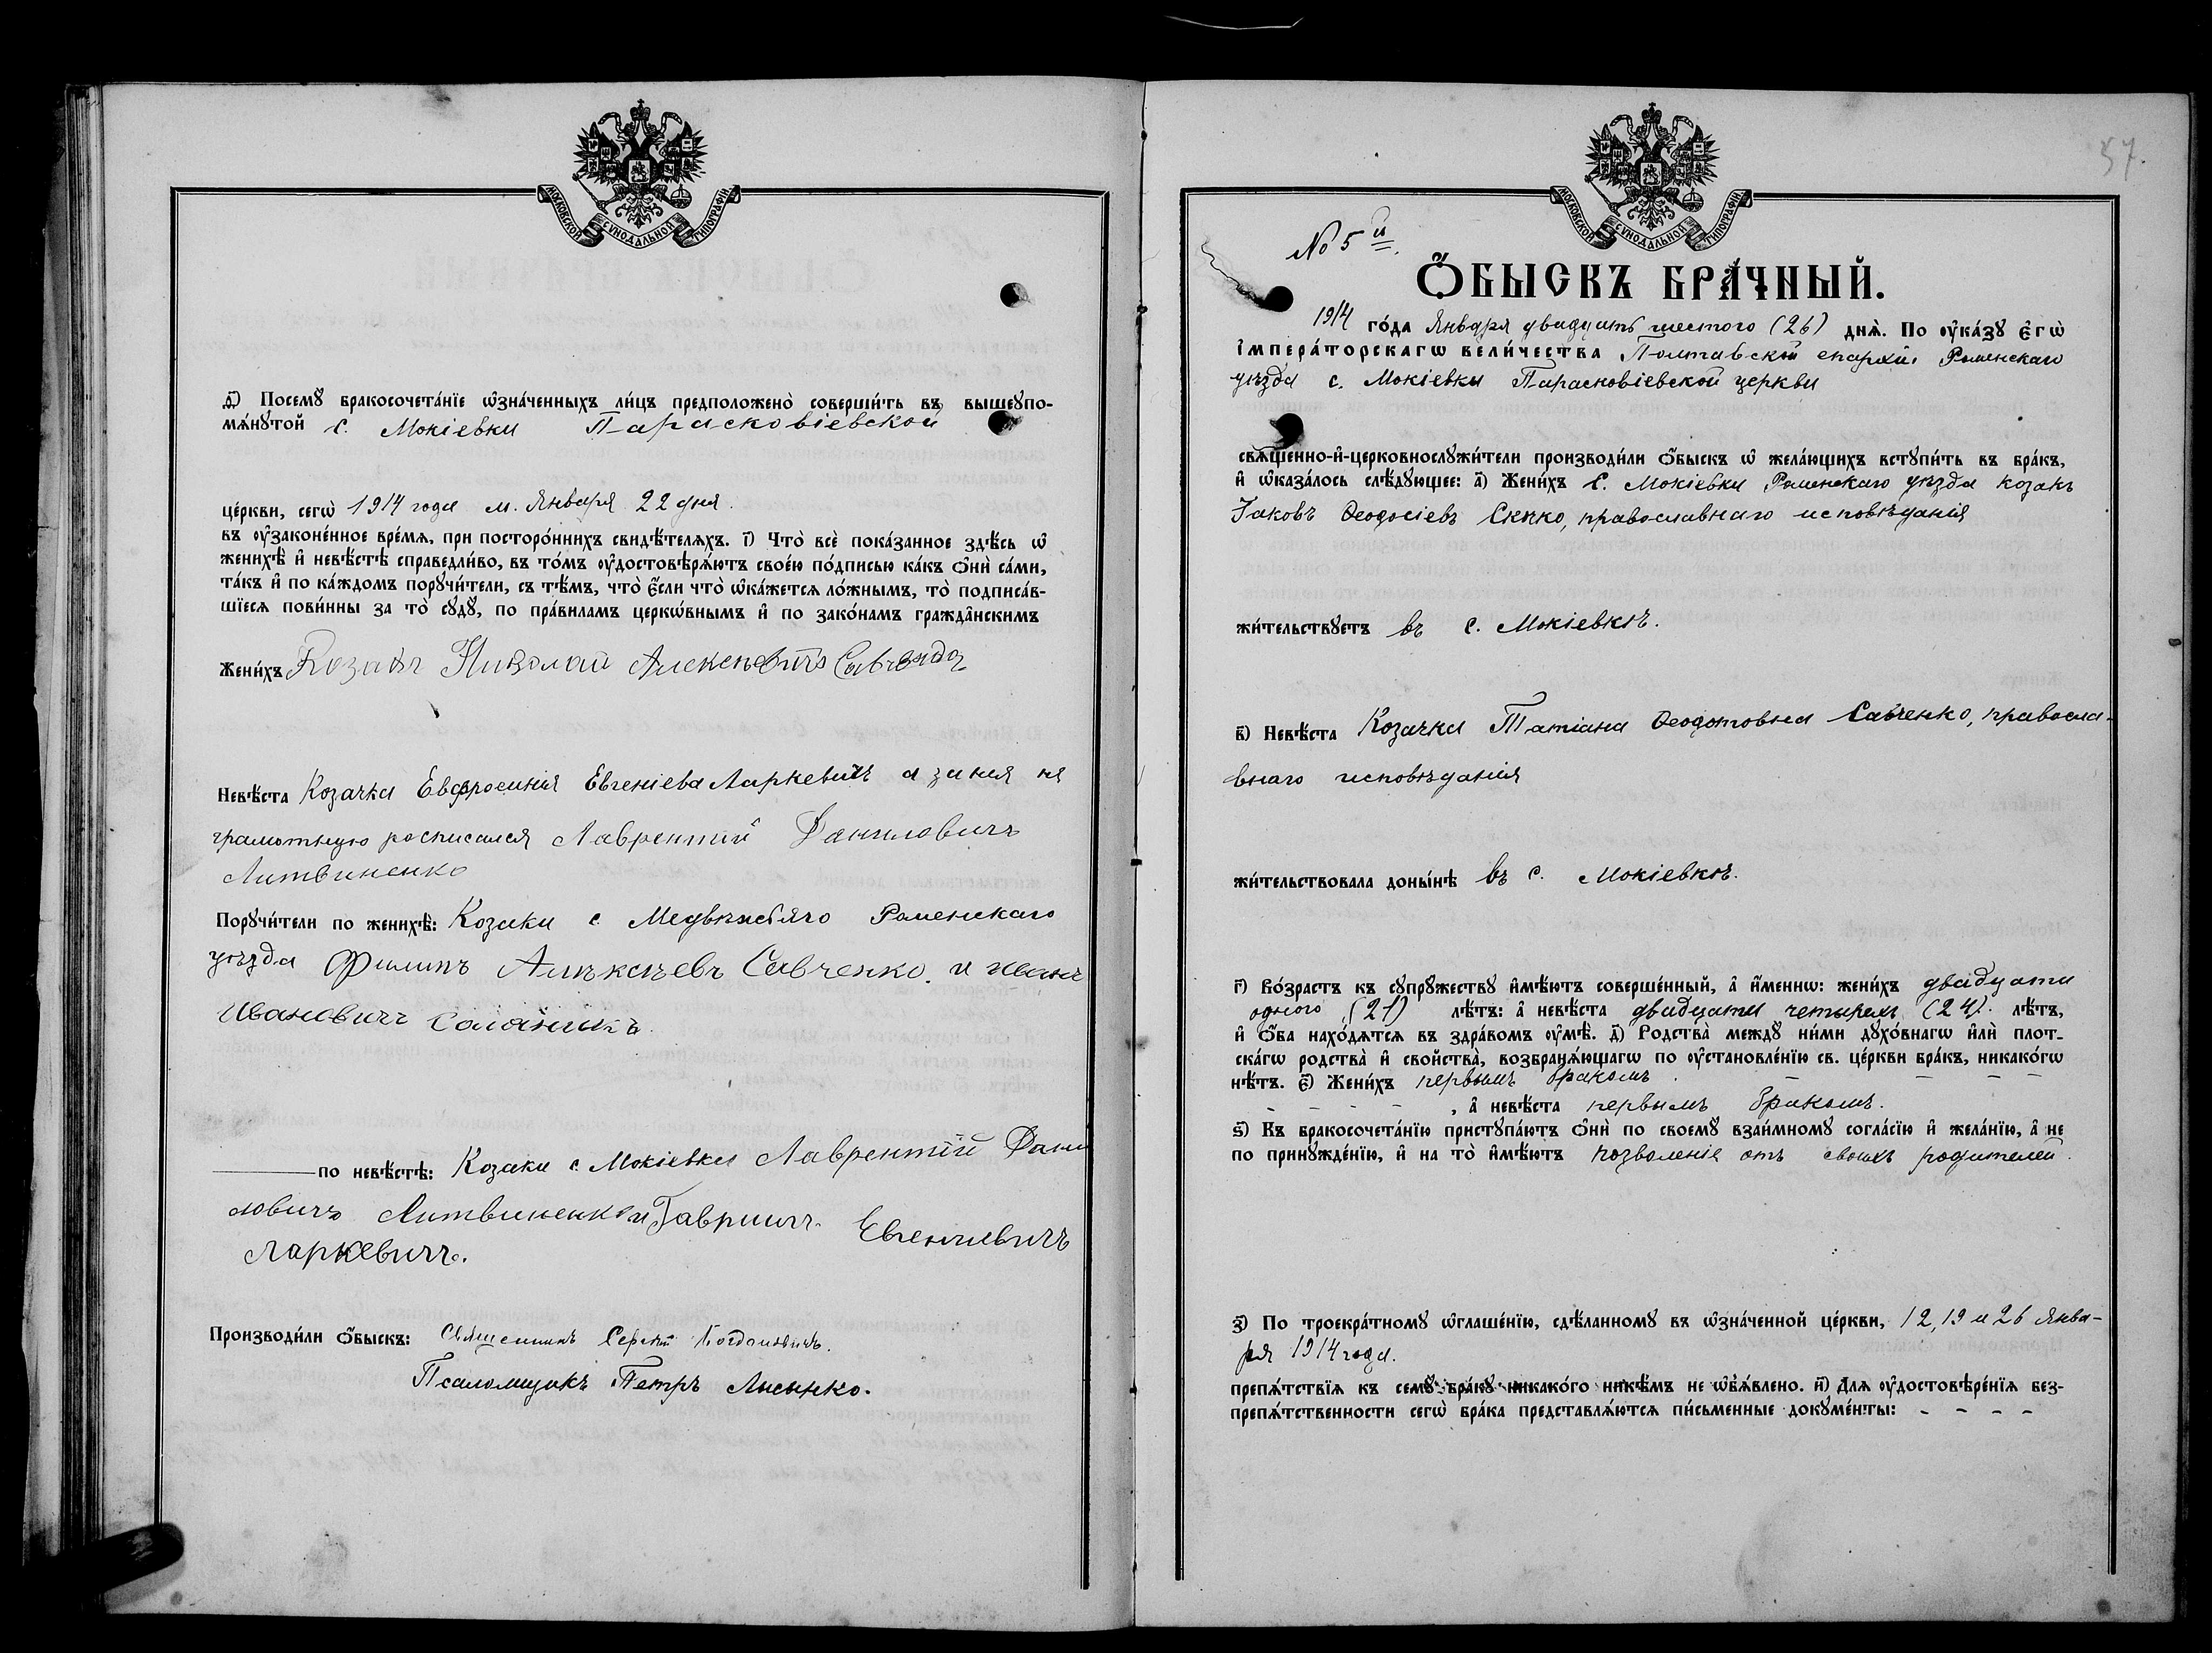 МОСКОВСКОЙ СѴНОДАЛЬНОЙ ТИПОГРАФІИ
Ѳ҃) Посемꙋ бракосочета́нїе ѡ҆зна́ченныхъ ли́цъ предположено̀ соверши́ть въ вышеꙋпо-
мѧ́нꙋтой с. Мокіевки Парасковіевской
це́ркви, сегѡ̀ 1914 года м. Января 22 дня.
въ ᲂу҆законе́нное вре́мѧ, при посторо́ннихъ свидѣ́телѧхъ. І҃) Что̀ всѐ пока́занное здѣ́сь ѡ҆
женихѣ̀ и҆ невѣ́стѣ справедли́во, въ то́мъ ᲂу҆достовѣрѧ́ютъ свое́ю по́дписью ка́къ ѻ҆нѝ са́ми,
та́къ и҆ по ка́ждомъ порꙋчи́тели, съ тѣ́мъ, что̀ є҆́сли что̀ ѡ҆ка́жетсѧ ло́жнымъ, то̀ подписа́в-
шїесѧ пови́нны за то̀ сꙋдꙋ̀, по пра́виламъ церкѡ́внымъ и҆ по зако́намъ гражда̂нскимъ
Жени́хъ Козакъ Николай Алексѣевичъ
Невѣ́ста Козачка Евфросинія Евгеніева Ларкевичъ а за нея не
грамотную росписался Лаврентій Даниловичъ
Литвиненко
Порꙋчи́тели по женихѣ̀: Козаки с Медвѣжьяго Роменскаго
уѣзда Филипъ Алѣксѣевъ Савченко. и иванъ
Ивановичъ
по невѣ́стѣ: Козаки с. Мокіевки Лаврентій Дани
ловичъ Литвиненко и Гавриилъ Евгениевичъ
Ларкевичъ.
Производи́ли ѻ҆́быскъ: Священникъ Сергій
Псаломщикъ Петръ Лысенко.
57.
МОСКОВСКОЙ СѴНОДАЛЬНОЙ ТИПОГРАФІИ
№ 5й.
Ѻ҆́БЫСКЪ БРА́ЧНЫЙ.
1914 го́да Января двадцать шестого (26) днѧ̀. По ᲂу҆ка́зꙋ є҆гѡ̀
і҆мпера́торскагѡ вели́чества Полтавской епархіи Роменскаго
уѣзда с. Мокіевки Парасковіевской церкви
свѧще́нно-и҆-церковнослꙋжи́тели производи́ли ѻ҆́быскъ ѡ҆ жела́ющихъ встꙋпи́ть въ бра́къ,
и҆ ѡ҆каза́лось слѣ́дꙋющее: а҃) Жени́хъ с. Мокіевки Роменскаго уѣзда козакъ
Іаковъ Ѳеодосіевъ православнаго исповѣданія
жи́тельствꙋетъ въ с. Мокіевкѣ.
в҃) Невѣ́ста Козачка Татіана Ѳеодотовна Савченко, правосла-
внаго исповѣданія
жи́тельствовала доны́нѣ въ с. Мокіевкѣ.
г҃) Во́зрастъ къ сꙋпрꙋ́жествꙋ и҆мѣ́ютъ соверше́нный, а҆ и҆́меннѡ: жени́хъ двадцати
одного (21) лѣ́тъ: а҆ невѣ́ста двадцати четырехъ (24). лѣ́тъ,
и҆ ѻ҆́ба нахо́дѧтсѧ въ здра́вомъ ᲂу҆мѣ̀. д҃) Родства̀ междꙋ ни́ми дꙋхо́внагѡ и҆лѝ плот-
ска́гѡ родства̀ и҆ свойства̀, возбранѧ́ющагѡ по ᲂу҆становле́нїю св. це́ркви бра́къ, никако́гѡ
нѣ́тъ. є҃) Жени́хъ первымъ бракомъ . – – – –
– – – – , а҆ невѣ́ста первымъ бракомъ.
ѕ҃) Къ бракосочета́нїю пристꙋпа́ютъ ѻ҆нѝ по своемꙋ̀ взаи́мномꙋ согла́сїю и҆ жела́нїю, а҆ не
по принꙋжде́нїю, и҆ на то̀ и҆мѣ́ютъ позволенія отъ своихъ родителей.
з҃) По троекра́тномꙋ ѡ҆глаше́нїю, сдѣ́ланномꙋ въ ѡ҆зна́ченной це́ркви, 12, 19 и 26 Янва-
ря 1914 года.
препѧ́тствїѧ къ семꙋ̀ бра́кꙋ никако́го никѣ́мъ не ѡ҆б̾ѧ́влено. и҃) Длѧ ᲂу҆достовѣре́нїѧ без-
препѧ́тственности сегѡ̀ бра́ка представлѧ́ютсѧ пи́сьменные докꙋме́нты: – – – –